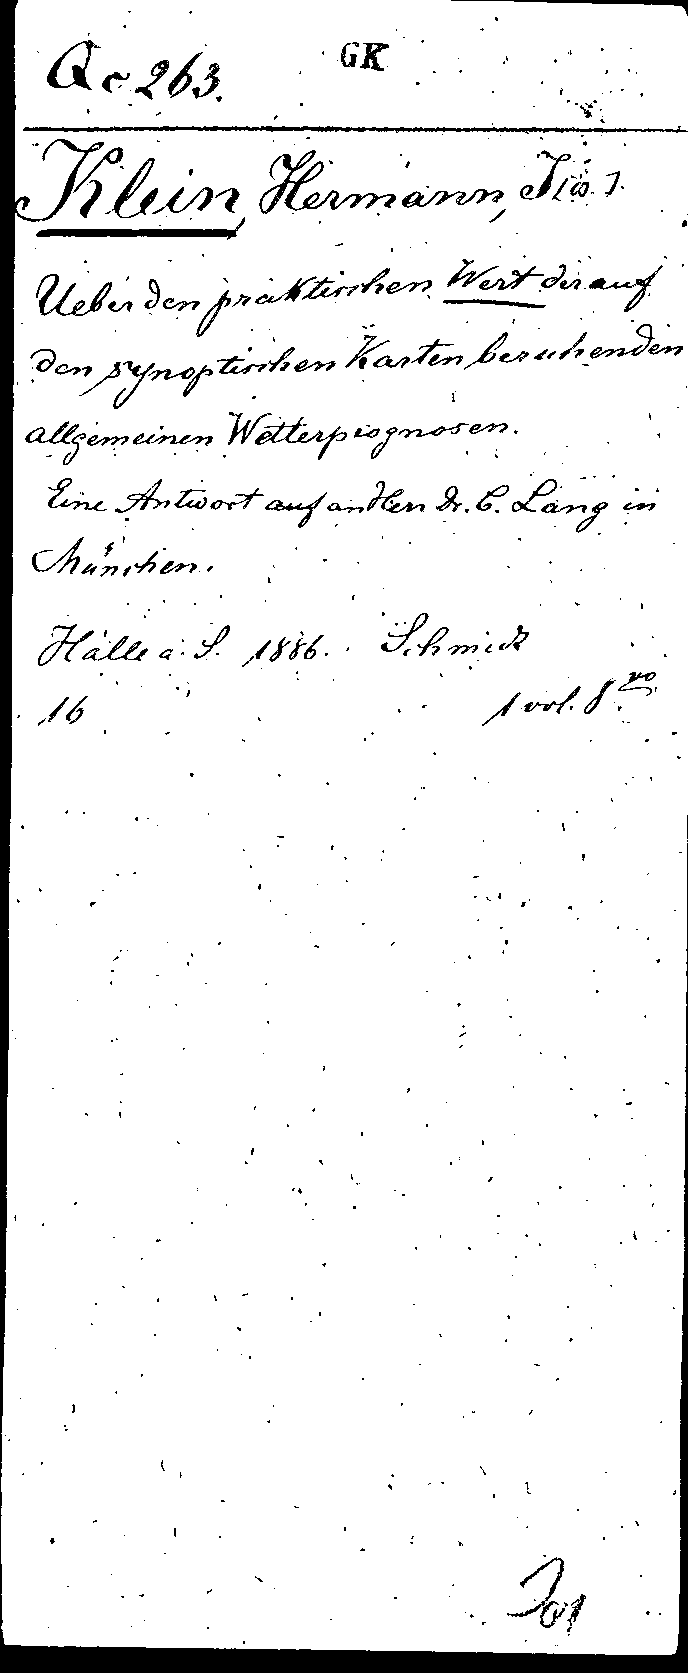 Qc 263.
GK
Klein, Hermann, J.
Ueber den praktischen Wert der auf
den synoptischen Karten beruhenden
allgemeinen Wetterprognosen.
Eine Antwort auf an Hern Dr. C. Lang in
München.
Halle a. S. 1886. Schmidt
16 1 vol. 8vo.